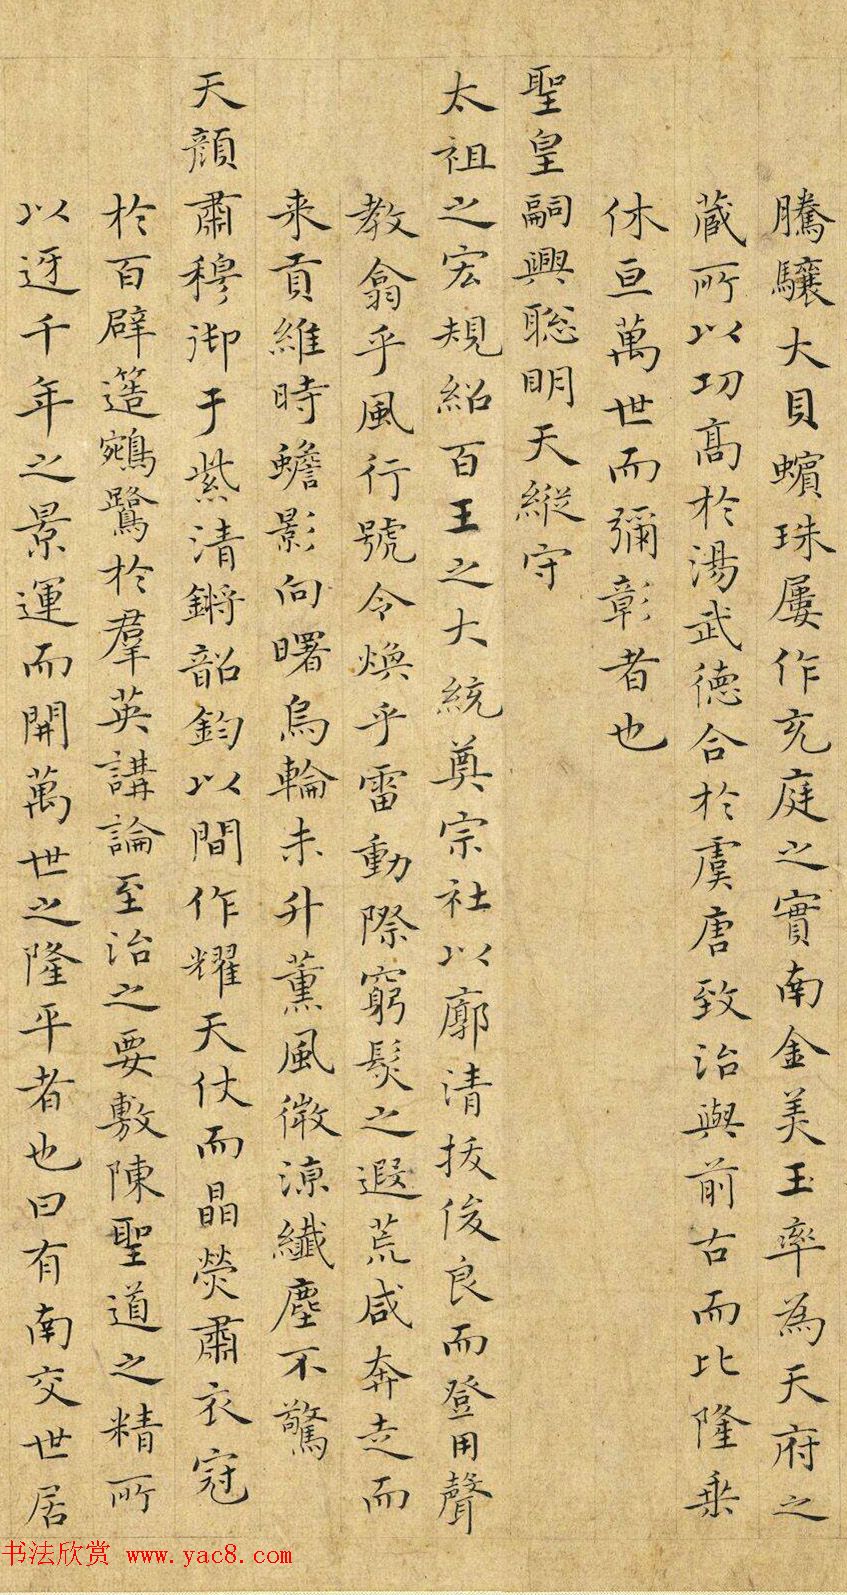 騰驤大貝蠙珠屢作充庭之實南金美玉率為天府之
藏所以功高於湯武德合於虞唐致治與前古而比隆乗
休亘萬世而彌彰者也
聖皇嗣興聡明天縦守
太祖之宏規紹百王之大統奠宗社以廓清抜俊良而登用聲
教翕乎風行號令煥乎雷動際窮髮之遐荒咸奔走而
来貢維時蟾影向曙烏輪未升薰風微涼纎塵不驚
天顔肅穆御于紫清鏘韶鈞以間作耀天仗而晶熒肅衣冠
於百辟簉鵷鷺於羣英講論至治之要敷陳聖道之精所
以迓千年之景運而開萬世之隆平者也曰有南交世居
书法欣赏 www.yac8.com